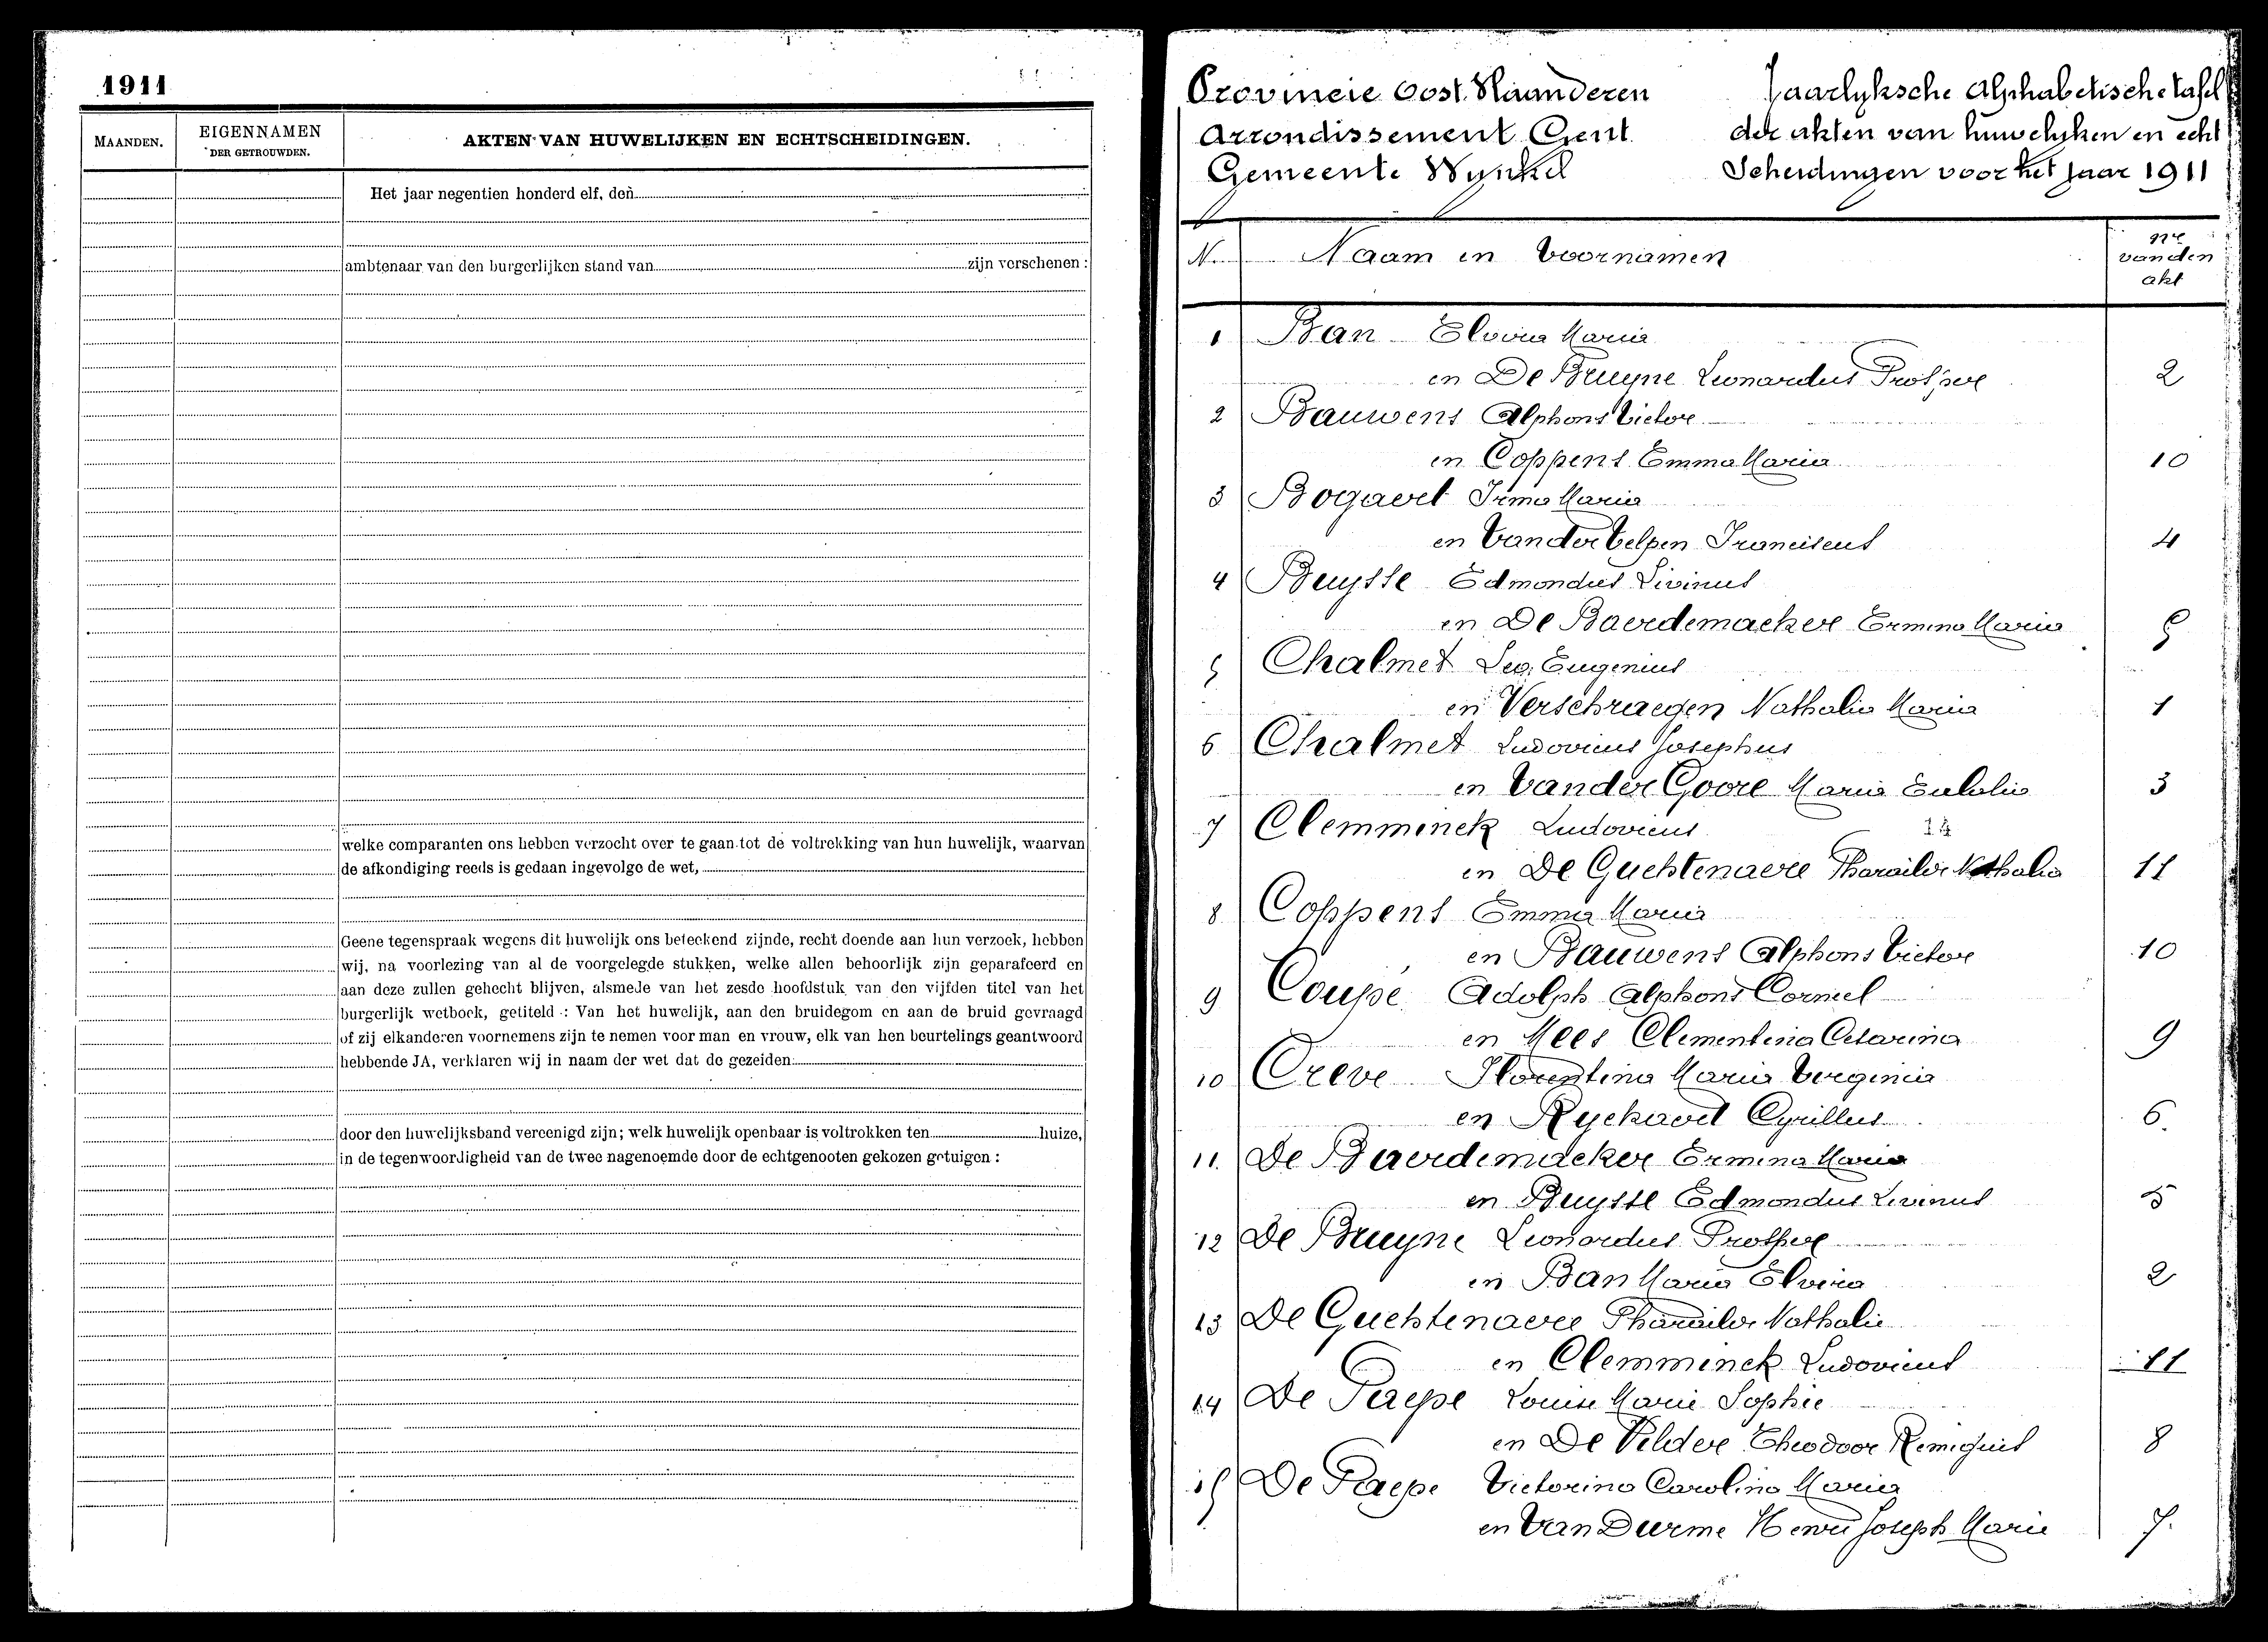 1911
MAANDEN.
EIGENNAMEN
DER GETROUWDEN.
AKTEN VAN HUWELIJKEN EN ECHTSCHEIDINGEN.
Het jaar negentien honderd elf, den
ambtenaar van den burgerlijken stand van zijn verschenen:
welke comparanten ons hebben verzocht over te gaan tot de voltrekking van hun huwelijk, waarvan
de afkondiging reeds is gedaan ingevolge de wet,
Geene tegenspraak wegens dit huwelijk ons beteekend zijnde, recht doende aan hun verzoek, hebben
wij, na voorlezing van al de voorgelegde stukken, welke allen behoorlijk zijn geparafeerd en
aan deze zullen gehecht blijven, alsmede van het zesde hoofdstuk van den vijfden titel van het
burgerlijk wetboek, getiteld: Van het huwelijk, aan den bruidegom en aan de bruid gevraagd
of zij elkanderen voornemens zijn te nemen voor man en vrouw, elk van hen beurtelings geantwoord
hebbende JA, verklaren wij in naam der wet dat de gezeiden:
door den huwelijksband vereenigd zijn; welk huwelijk openbaar is voltrokken ten huize,
in de tegenwoordigheid van de twee nagenoemde door de echtgenooten gekozen getuigen:
Provincie Oost. Vlaanderen
Arrondissement Gent
Gemeente Wynkel
Jaarlyksche Alphabetische tafel
der akten van huwelyken en echt
Scheidingen voor het jaar 1911
N. Naam en Voornamen nr van den akt
1 Ban Elvira Maria
en De Bruyne Leonardus Prosper 2
2 Bauwens Alphons Victor
en Coppens Emma Maria 10
3 Bogaert Irma Maria
en Vander Velpen Franciscus 4
4 Buysse Edmondus Livinus
en De Baerdemaeker Ermina Maria 5
5 Chalmet Leo Eugenius
en Verschraegen Nathalia Maria 1
6 Chalmet Ludovicus Josephus
en Vander Goore Maria Eulalia 3
7 Clemminck Ludovicus
en De Guchtenaere Pharaïlde Nathalia 11
8 Coppens Emma Maria
en Bauwens Alphons Victor 10
9 Coupé Adolph Alphons Corneel
en Mees Clementina Cesarina 9
10 Creve Florentina Maria Virginia
en Ryckaert Cyrillus 6.
11. De Baerdemaeker Ermina Maria
en Buysse Edmondus Livinus 5
12 De Bruyne Leonardus Prosper
en Ban Maria Elvira 2
13 De Guchtenaere Pharaïlde Nathalie
en Clemminck Ludovicus 11
14 De Paepe Louise Marie Sophie
en De Vilder Theodoor Remigius 8
15 De Paepe Victorina Carolina Maria
en Van Durme Henri Joseph Marie 7.